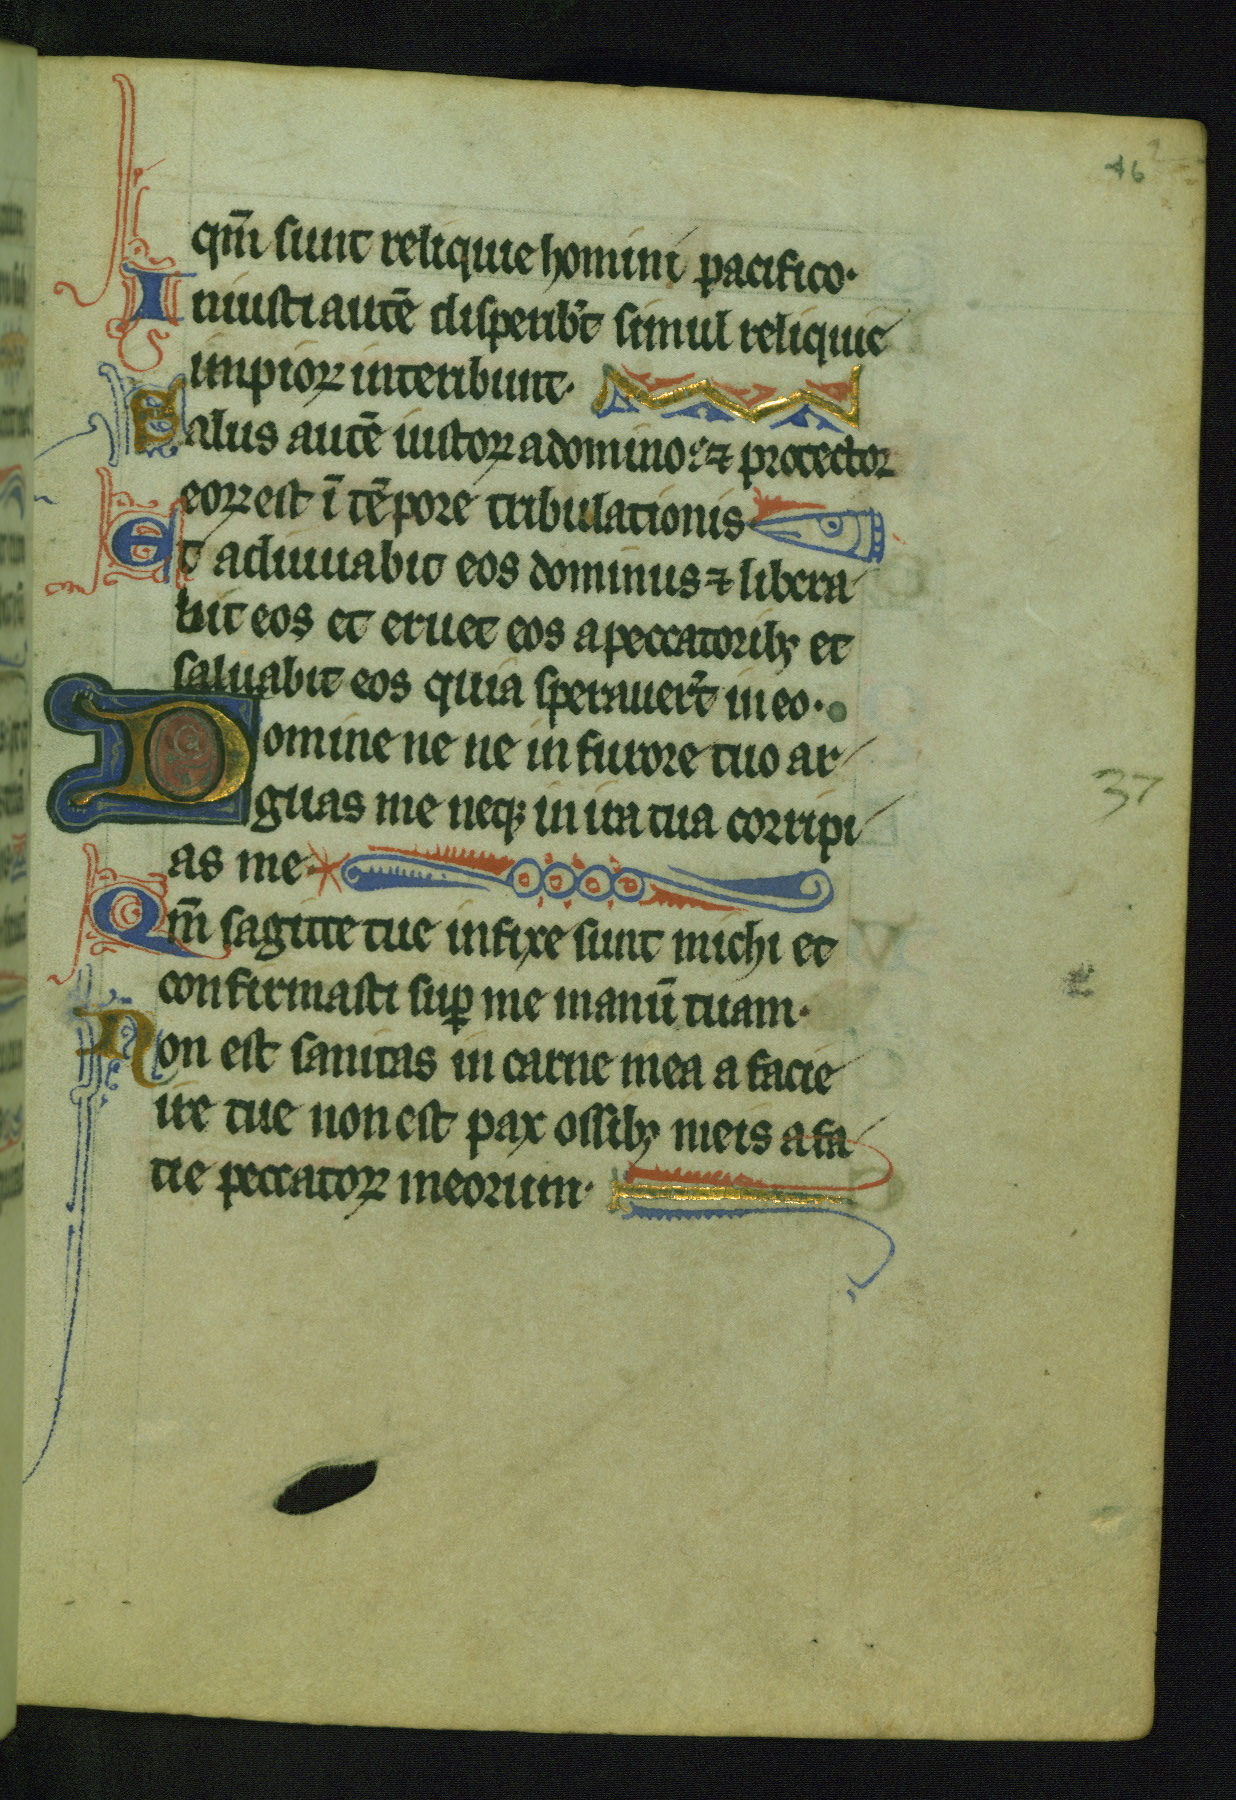 46
qm̄ sunt reliquie homini pacifico·
Iniusti autē disperib̃t simul reliquie
impioꝝ interibunt·
Salus autē iustoꝝ a domino : ⁊ protector
eoꝝ est ī tēpore tribulationis
Et adiuuabit eos dominus ⁊ libera
bit eos et eruet eos a peccatoribꝫ et
saluabit eos quia sperauer̃t in eo·
Domine ne ne in furore tuo ar
guas me neqꝫ in ira tua corripi
37
as me·
Qm̄ sagitte tue infixe sunt michi et
confirmasti suꝑ me manū tuam·
Non est sanitas in carne mea a facie
ire tue non est pax ossibꝫ meis a fa
cie peccatoꝝ meorum·